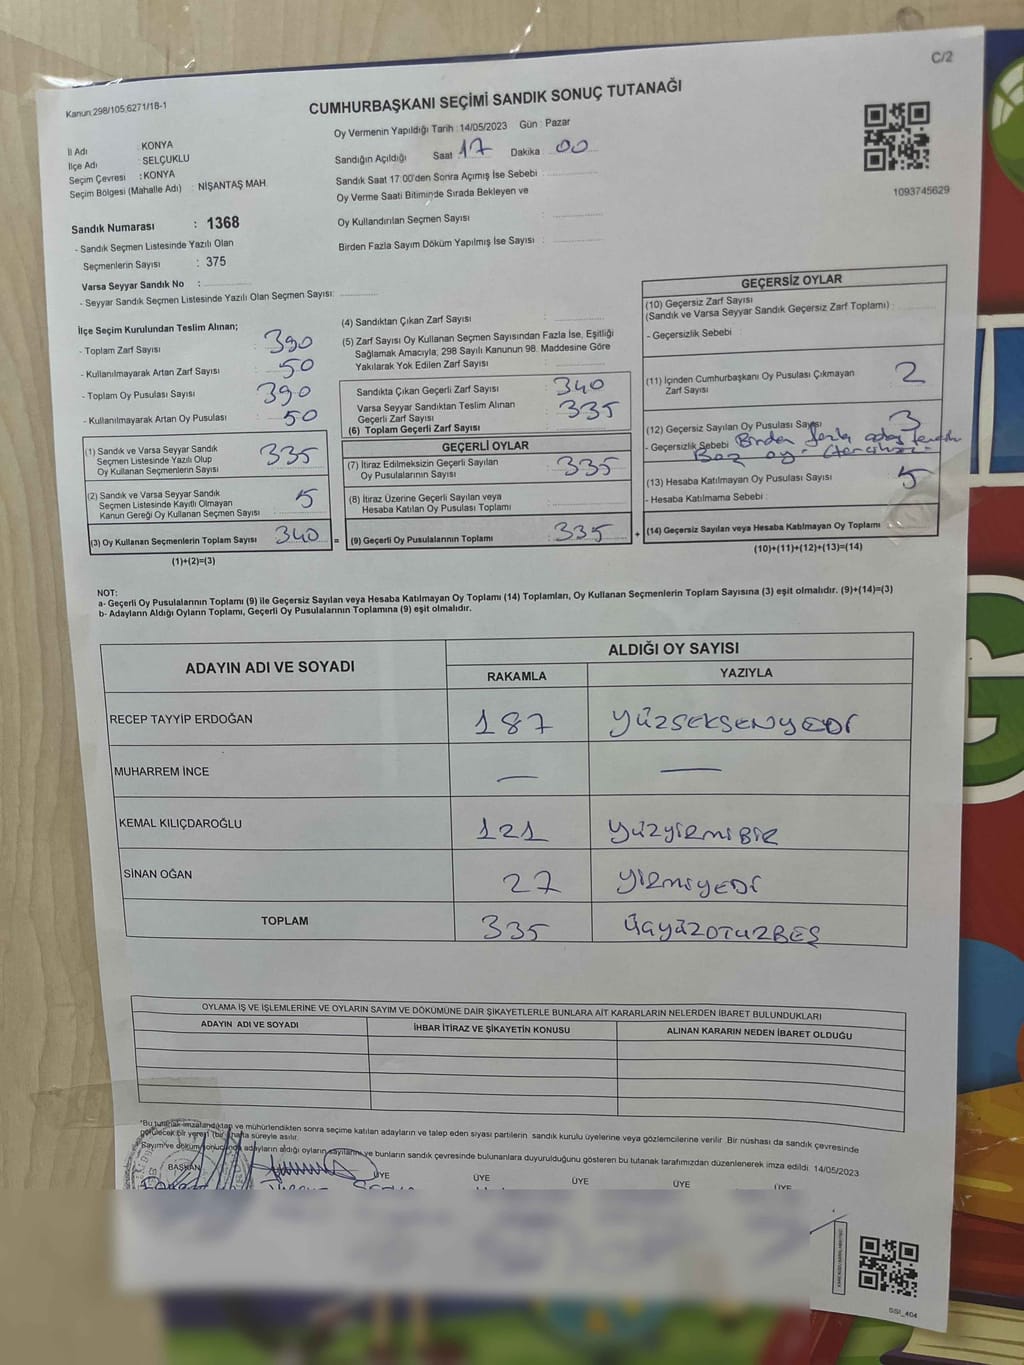 C/2
Kanun:298/105;6271/18-1
CUMHURBAŞKANI SEÇİMİ SANDIK SONUÇ TUTANAĞI
Oy Vermenin Yapıldığı Tarih :14/05/2023 Gün : Pazar
İl Adı : KONYA
İlçe Adı : SELÇUKLU
Seçim Çevresi : KONYA
Seçim Bölgesi (Mahalle Adı) : NİŞANTAŞ MAH.
Sandığın Açıldığı Saat 17 Dakika 00
Sandık Saat 17:00'den Sonra Açımış İse Sebebi :
Oy Verme Saati Bitiminde Sırada Bekleyen ve
Oy Kullandırılan Seçmen Sayısı :
Birden Fazla Sayım Döküm Yapılmış İse Sayısı :
1093745629
Sandık Numarası : 1368
- Sandık Seçmen Listesinde Yazılı Olan
Seçmenlerin Sayısı : 375
Varsa Seyyar Sandık No :
- Seyyar Sandık Seçmen Listesinde Yazılı Olan Seçmen Sayısı:
İlçe Seçim Kurulundan Teslim Alınan;
- Toplam Zarf Sayısı : 390
- Kullanılmayarak Artan Zarf Sayısı : 50
- Toplam Oy Pusulası Sayısı : 390
- Kullanılmayarak Artan Oy Pusulası : 50
(1) Sandık ve Varsa Seyyar Sandık
Seçmen Listesinde Yazılı Olup
Oy Kullanan Seçmenlerin Sayısı : 335
(2) Sandık ve Varsa Seyyar Sandık
Seçmen Listesinde Kayıtlı Olmayan
Kanun Gereği Oy Kullanan Seçmen Sayısı : 5
(3) Oy Kullanan Seçmenlerin Toplam Sayısı : 340
(1)+(2)=(3)
(4) Sandıktan Çıkan Zarf Sayısı :
(5) Zarf Sayısı Oy Kullanan Seçmen Sayısından Fazla İse, Eşitliği
Sağlamak Amacıyla, 298 Sayılı Kanunun 98. Maddesine Göre
Yakılarak Yok Edilen Zarf Sayısı :
Sandıkta Çıkan Geçerli Zarf Sayısı : 340
Varsa Seyyar Sandıktan Teslim Alınan
Geçerli Zarf Sayısı : 335
(6) Toplam Geçerli Zarf Sayısı :
GEÇERLİ OYLAR
(7) İtiraz Edilmeksizin Geçerli Sayılan
Oy Pusulalarının Sayısı : 335
(8) İtiraz Üzerine Geçerli Sayılan veya
Hesaba Katılan Oy Pusulası Toplamı :
= (9) Geçerli Oy Pusulalarının Toplamı : 335 +
GEÇERSİZ OYLAR
(10) Geçersiz Zarf Sayısı
(Sandık ve Varsa Seyyar Sandık Geçersiz Zarf Toplamı) :
- Geçersizlik Sebebi :
(11) İçinden Cumhurbaşkanı Oy Pusulası Çıkmayan
Zarf Sayısı : 2
(12) Geçersiz Sayılan Oy Pusulası Sayısı : 3
- Geçersizlik Sebebi : Birden fazla aday
Boş oy
(13) Hesaba Katılmayan Oy Pusulası Sayısı : 5
- Hesaba Katılmama Sebebi :
(14) Geçersiz Sayılan veya Hesaba Katılmayan Oy Toplamı :
(10)+(11)+(12)+(13)=(14)
NOT:
a- Geçerli Oy Pusulalarının Toplamı (9) ile Geçersiz Sayılan veya Hesaba Katılmayan Oy Toplamı (14) Toplamları, Oy Kullanan Seçmenlerin Toplam Sayısına (3) eşit olmalıdır. (9)+(14)=(3)
b- Adayların Aldığı Oyların Toplamı, Geçerli Oy Pusulalarının Toplamına (9) eşit olmalıdır.
ADAYIN ADI VE SOYADI ALDIĞI OY SAYISI
RAKAMLA YAZIYLA
RECEP TAYYİP ERDOĞAN 187 YÜZSEKSENYEDİ
MUHARREM İNCE — —
KEMAL KILIÇDAROĞLU 121 YÜZYİRMİBİR
SİNAN OĞAN 27 YİRMİYEDİ
TOPLAM 335 ÜÇYÜZOTUZBEŞ
OYLAMA İŞ VE İŞLEMLERİNE VE OYLARIN SAYIM VE DÖKÜMÜNE DAİR ŞİKAYETLERLE BUNLARA AİT KARARLARIN NELERDEN İBARET BULUNDUKLARI
ADAYIN ADI VE SOYADI İHBAR İTİRAZ VE ŞİKAYETİN KONUSU ALINAN KARARIN NEDEN İBARET OLDUĞU
*Bu tutanak imzalandıktan ve mühürlendikten sonra seçime katılan adayların ve talep eden siyasi partilerin sandık kurulu üyelerine veya gözlemcilerine verilir. Bir nüshası da sandık çevresinde
görülecek bir yere 1 (bir) hafta süreyle asılır.
Sayım ve döküm sonucunda adayların aldığı oyların sayılarını ve bunların sandık çevresinde bulunanlara duyurulduğunu gösteren bu tutanak tarafımızdan düzenlenerek imza edildi. 14/05/2023
BAŞKAN ÜYE ÜYE ÜYE ÜYE ÜYE
SSI_404